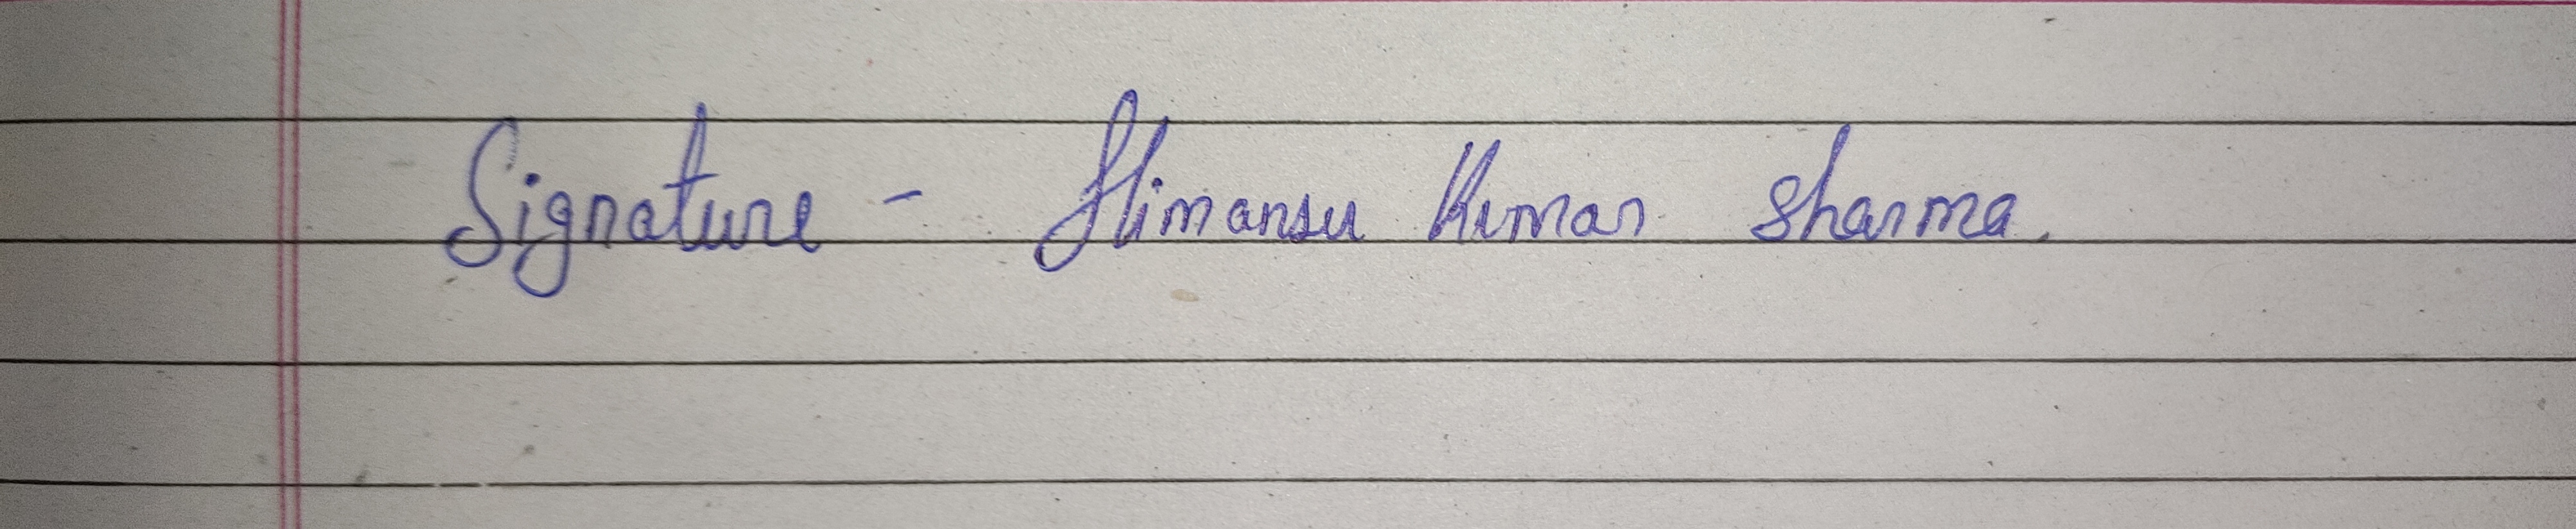 Signature - Himansu Kumar Sharma.